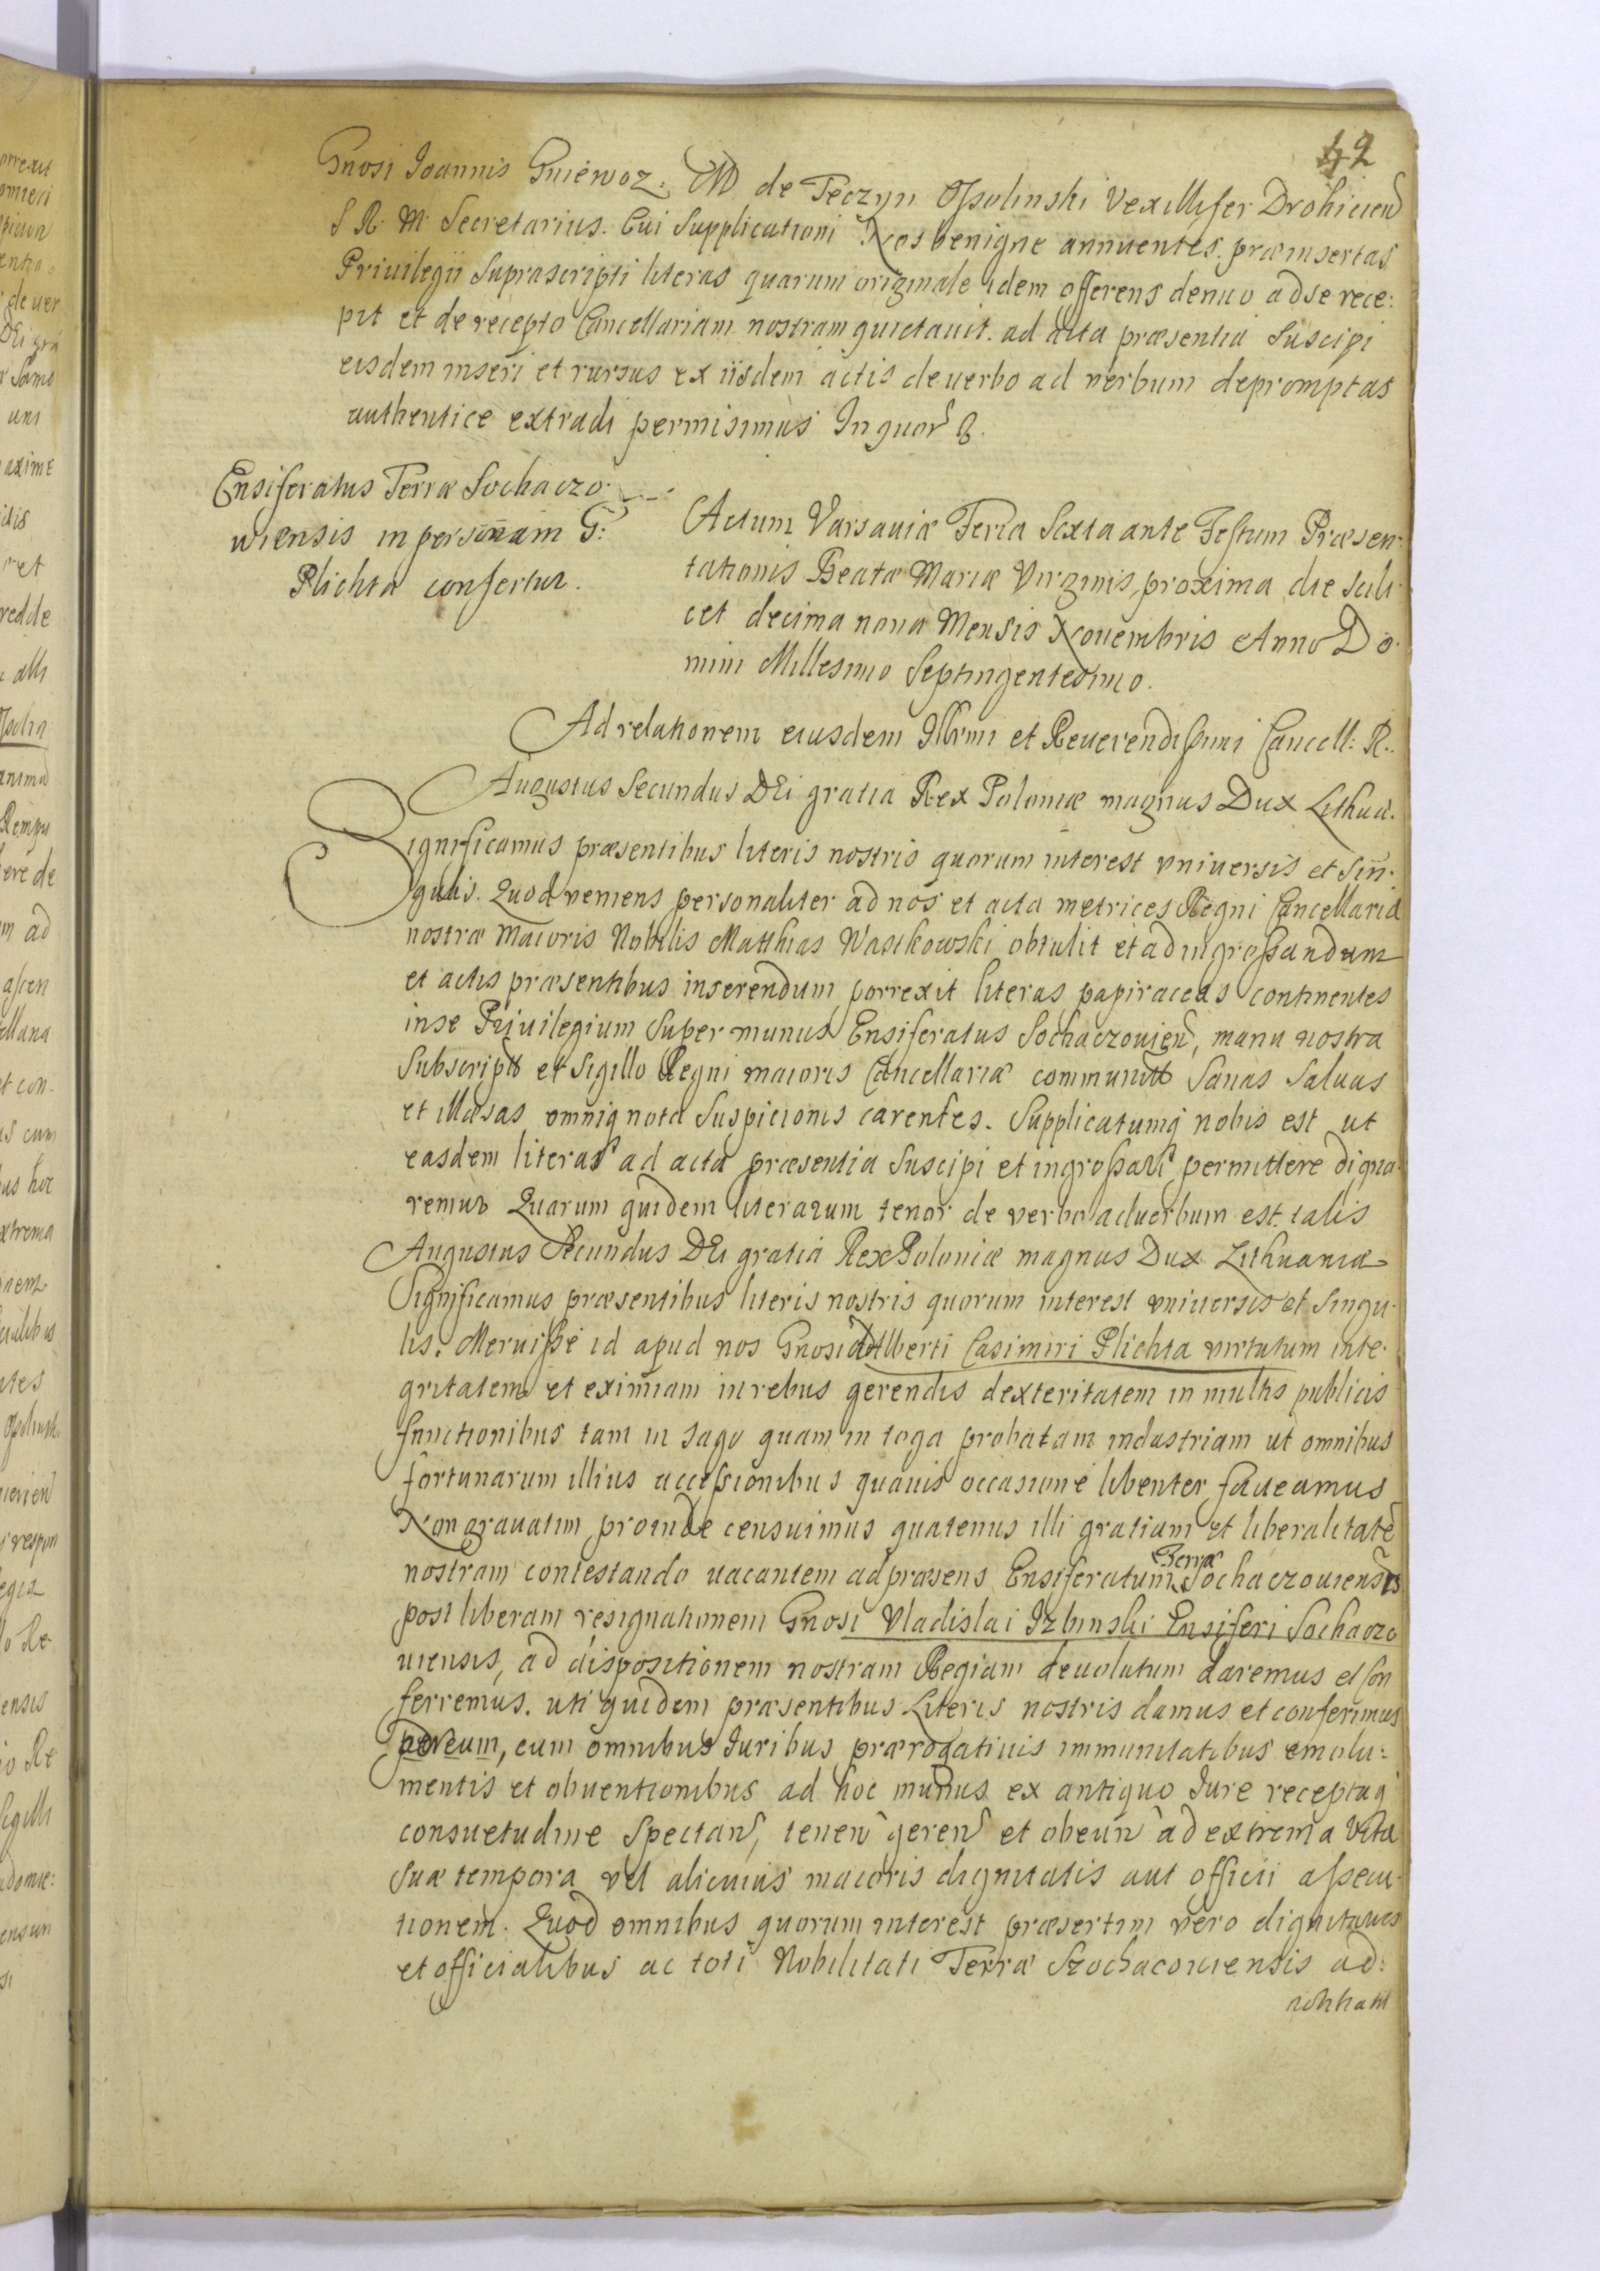 42
Gnosi Ioannis Gniewoz. M de Teczyn Ossolinski Vexillifer Drohicien
S R M Secretarius. Cui Supplicationi Nos benigne annuentes. præinsertas
Priuilegii Suprascripti literas quarum originale idem offerens denuo ad se rece:
pit et de recepto Cancellariam nostram quietauit. ad acta præsentia Suscipi
eisdem inseri et rursus ex iisdem actis de uerbo ad verbum depromptas
authentice extradi permisimus In quor
Ensiferatus Terræ Sochaczo
wiensis in personam G:
Plichta confertur.
Actum Varsaviæ Feria Sexta ante Festum Præsen
tationis Beatæ Mariæ Virginis, proxima die scili
cet decima nona Mensis Nouembris Anno Do
mini Millesimo Septingentesimo.
Ad relationem eiusdem Illrmi et Reuerendissimi Cancell: R.
Augustus Secundus DEi gratia Rex Poloniæ magnus Dux Lithua.
Significamus præsentibus literis nostris quorum interest vniversis et Sin
gulis. Quod veniens personaliter ad nos et acta metrices Regni Cancellariæ
nostræ Maioris Nobilis Matthias Wasikowski obtulit et ad ingrossandum
et actis præsentibus inserendum porrexit literas papiraceas continentes
in se Priuilegium Super munus Ensiferatus Sochaczouien, manu nostra
Subscript et Sigillo Regni maioris Cancellariæ communit Sanas Saluas
et illæsas omniq nota Suspicionis carentes. Supplicatumq nobis est ut
easdem literas ad acta præsentia Suscipi et ingrossari permittere digna
remur Quarum quidem literarum tenor de verbo ad uerbum est talis
Augustus Secundus DEi gratia Rex Poloniæ magnus Dux Lithuaniæ
Significamus præsentibus literis nostris quorum interest vniuersis et Singu
lis. Meruisse id apud nos Gnosi Adalberti Casimiri Plichta virtutum inte
gritatem et eximiam in rebus gerendis dexteritatem in multis publicis
functionibus tam in sago quam in toga probatam industriam ut omnibus
fortunarum illius accessionibus quauis occasione libenter faueamus
Non grauatim proinde censuimus quatenus illi gratiam et liberalitatē
nostram contestando uacantem ad præsens Ensiferatum Terræ Sochaczouiensis
post liberam resignationem Gnosi Vladislai Izbinski Ensiferi Sochaczo
uiensis, ad dispositionem nostram Regiam deuolutum daremus et con
ferremus. uti quidem præsentibus Literis nostris damus et conferimus
per eum, cum omnibus Iuribus prærogatiuis immunitatibus emolu:
mentis et obuentionibus ad hoc munus ex antiquo Iure receptaq
consuetudine Spectan, tenen geren et obeun ad extrema Vitæ
Suæ tempora vel alicuius maioris dignitatis aut officii assecu
tionem. Quod omnibus quorum interest præsertim vero dignitariis
et officialibus ac toti Nobilitati Terræ Szochacouiensis ad: